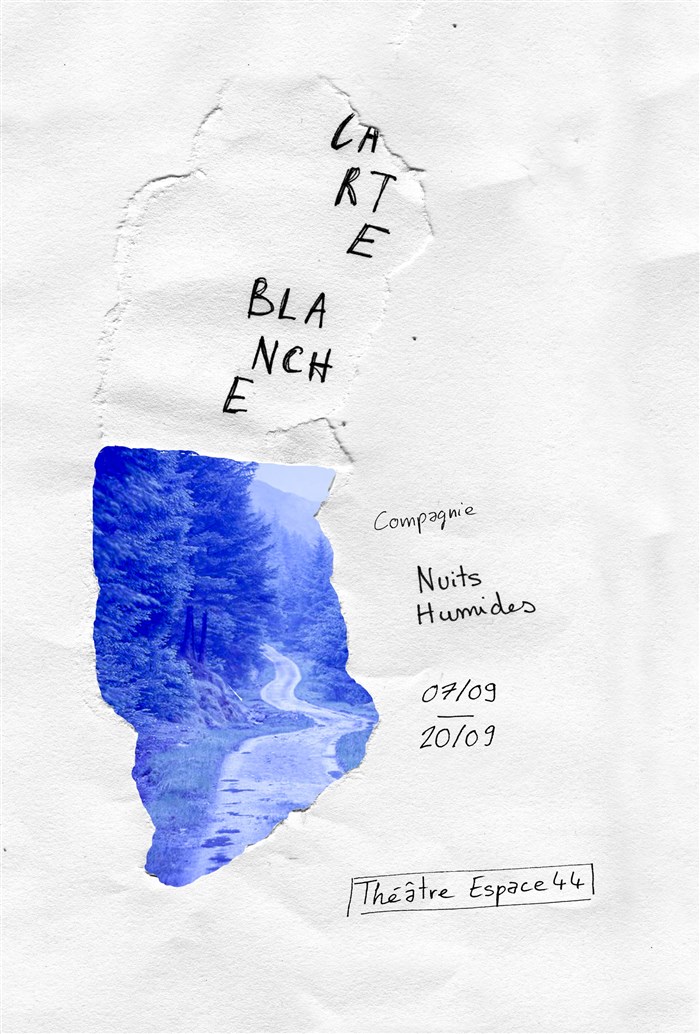 CA
RT
E
BLA
NCH
E
Compagnie
Nuits
Humides
07/09
20/09
Théâtre Espace 44